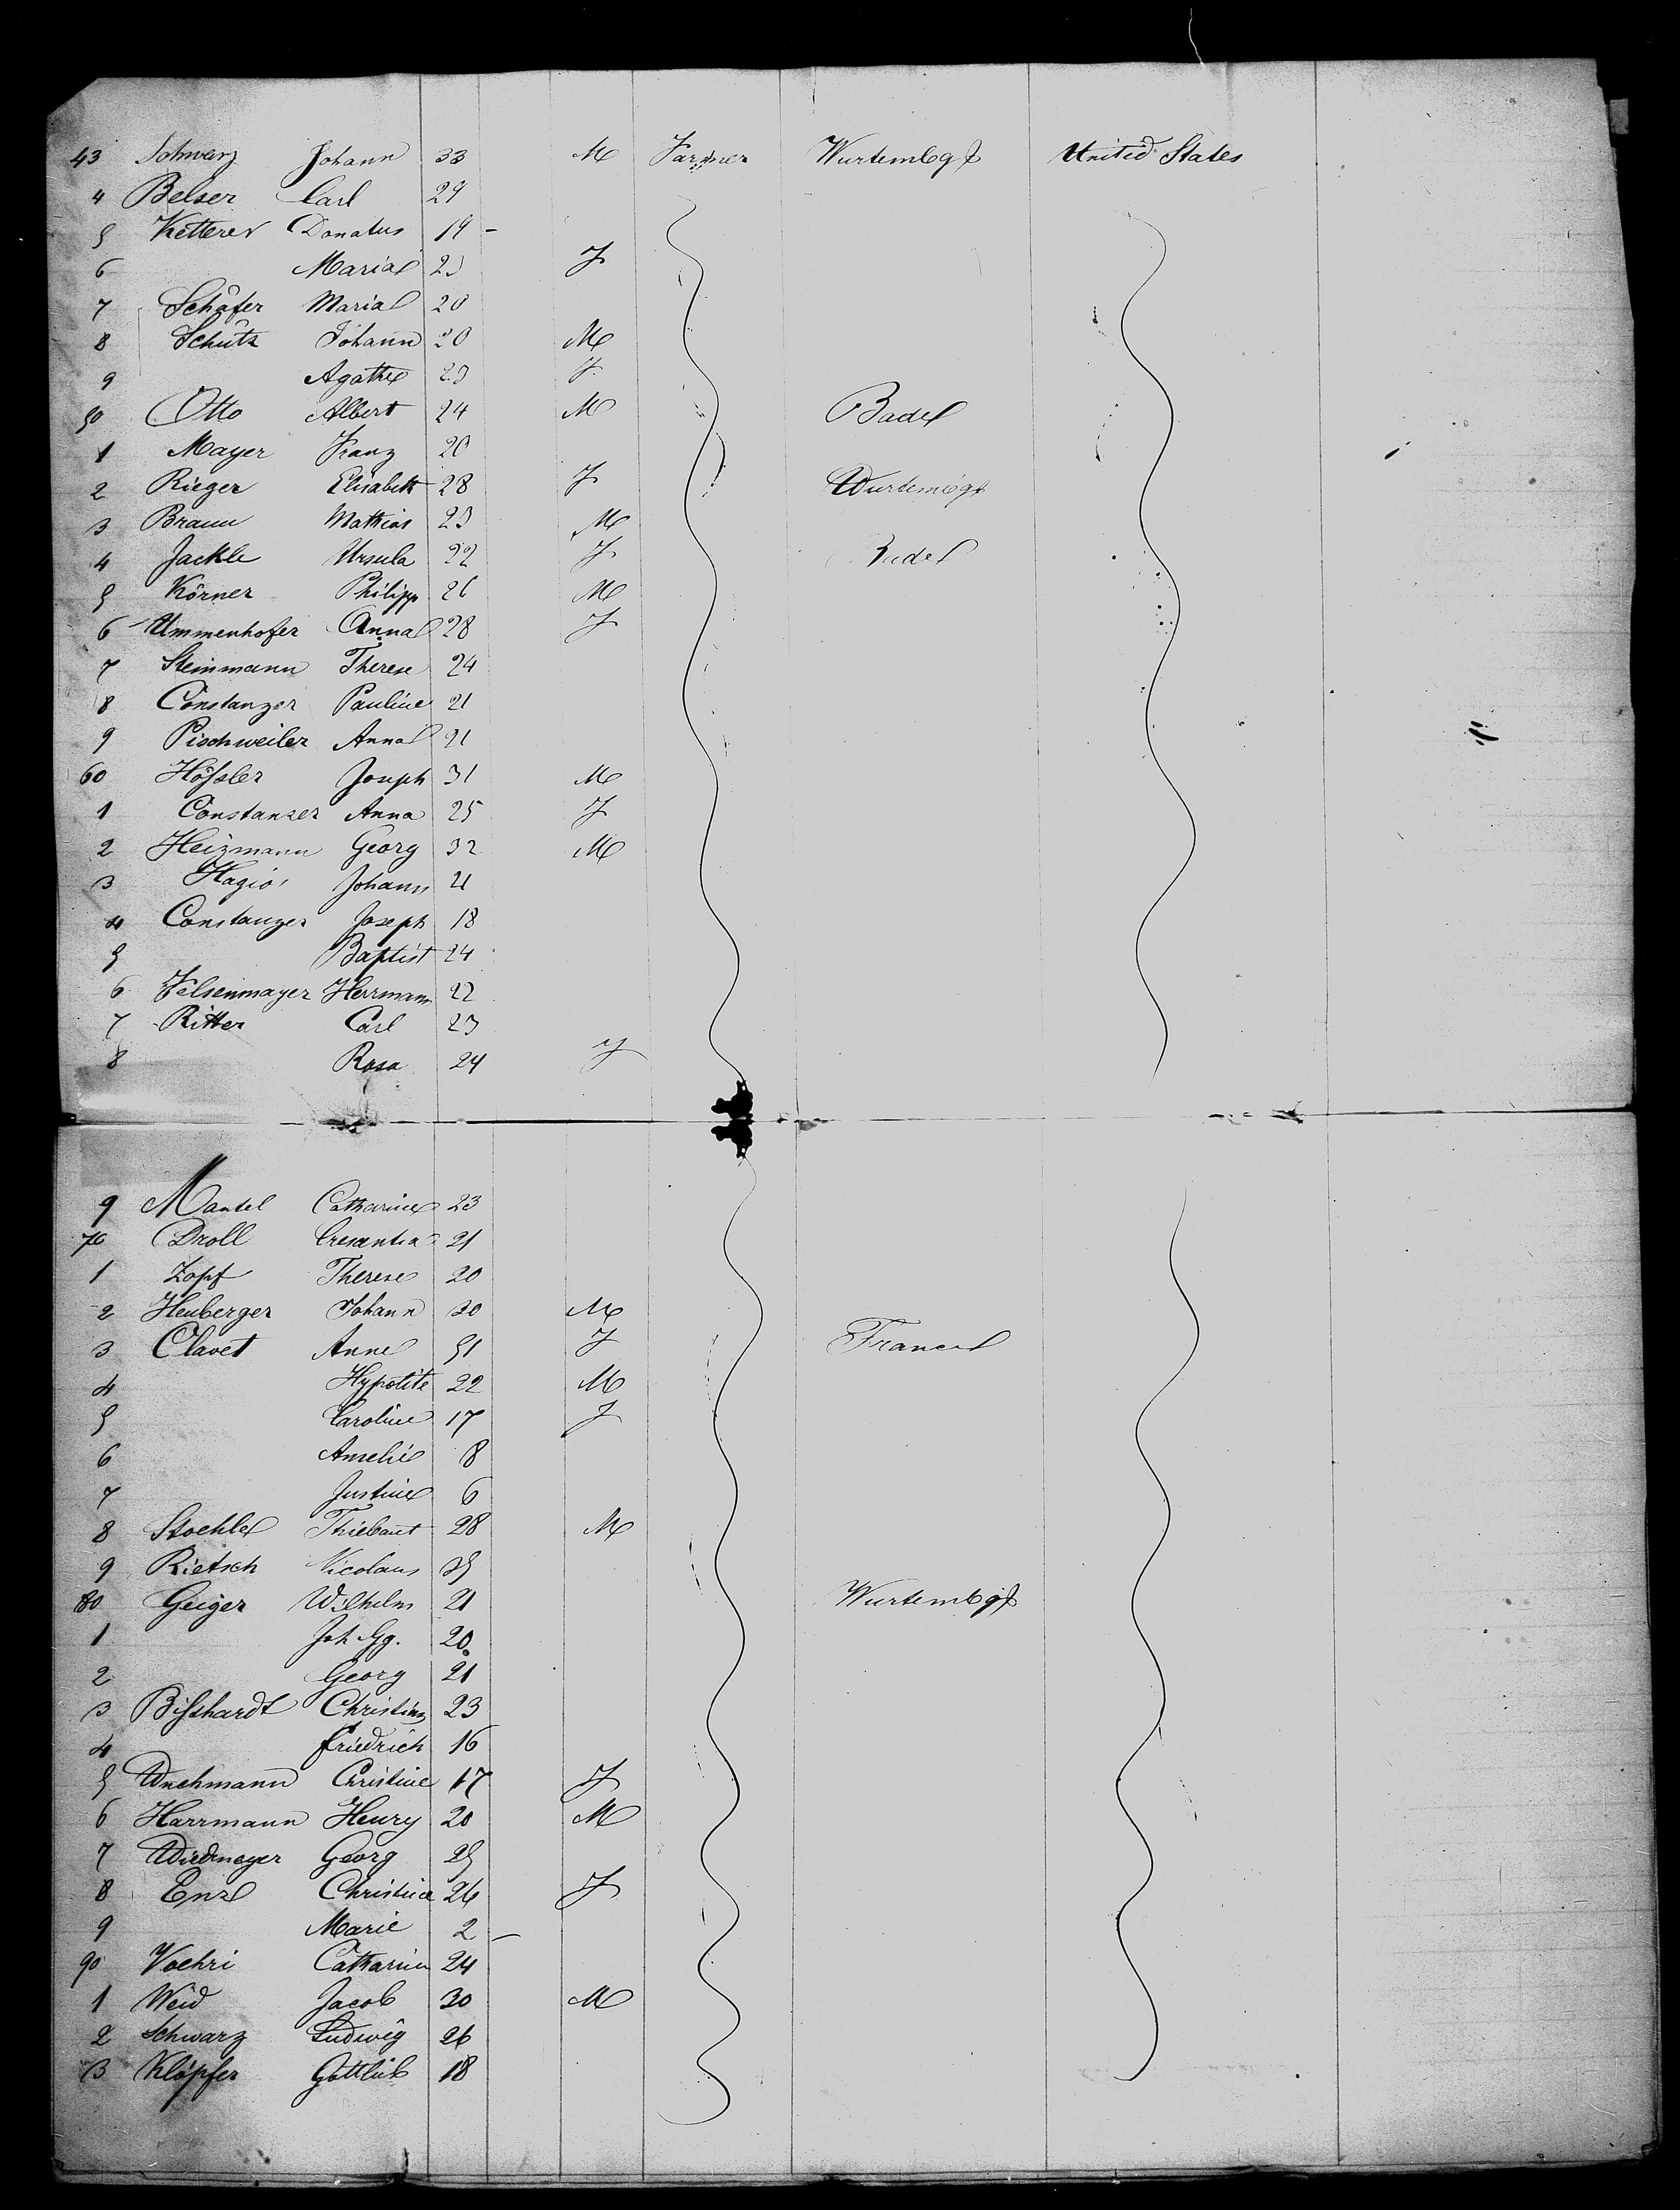 43 Schwarz Johann 33 M Farmer Wurtembgf United States
4 Belser Carl 29
5 Ketterer Donatus 19 -
6 Maria 23 F
7 Schäfer Maria 20
8 Schütz Johann 20 M
9 Agathe 23 F
50 Otto Albert 24 M Baden
1 Mayer Franz 20
2 Rieger Elisabeth 28 F Wurtembgf
3 Braun Mathias 23 M
4 Jackle Ursula 22 F Baden
5 Körner Philipp 26 M
6 Ummenhofer Anna 28 F
7 Steinmann Therese 24
8 Constanzer Pauline 21
9 Pischweiler Anna 21
60 Hössler Joseph 31 M
1 Constanzer Anna 25 F
2 Heizmann Georg 32 M
3 Hagios Johann 21
4 Constanzer Joseph 18
5 Baptist 24
6 Felsenmayer Herrmann 22
7 Ritter Carl 23
8 Rosa 24 F
9 Mantel Catharine 23
70 Droll Cresantia 21
1 Zopf Therese 20
2 Heuberger Johann 30 M
3 Clavet Anne 51 F France
4 Hypolite 22 M
5 Caroline 17 F
6 Amelie 8
7 Justine 6
8 Stoehle Thiebaut 28 M
9 Rietsch Nicolaus 25
80 Geiger Wilhelm 21 Wurtembgf
1 Joh Gg. 20
2 Georg 21
3 Bisshardt Christian 23
4 Friedrich 16
5 Christine 17 F
6 Harrmann Henry 20 M
7 Wiedmayer Georg 25
8 Enz Christine 26 F
9 Marie 2 -
90 Voehri Catharina 24
1 Weid Jacob 30 M
2 Schwarz Ludwig 26
3 Klöpfer Gottlieb 18